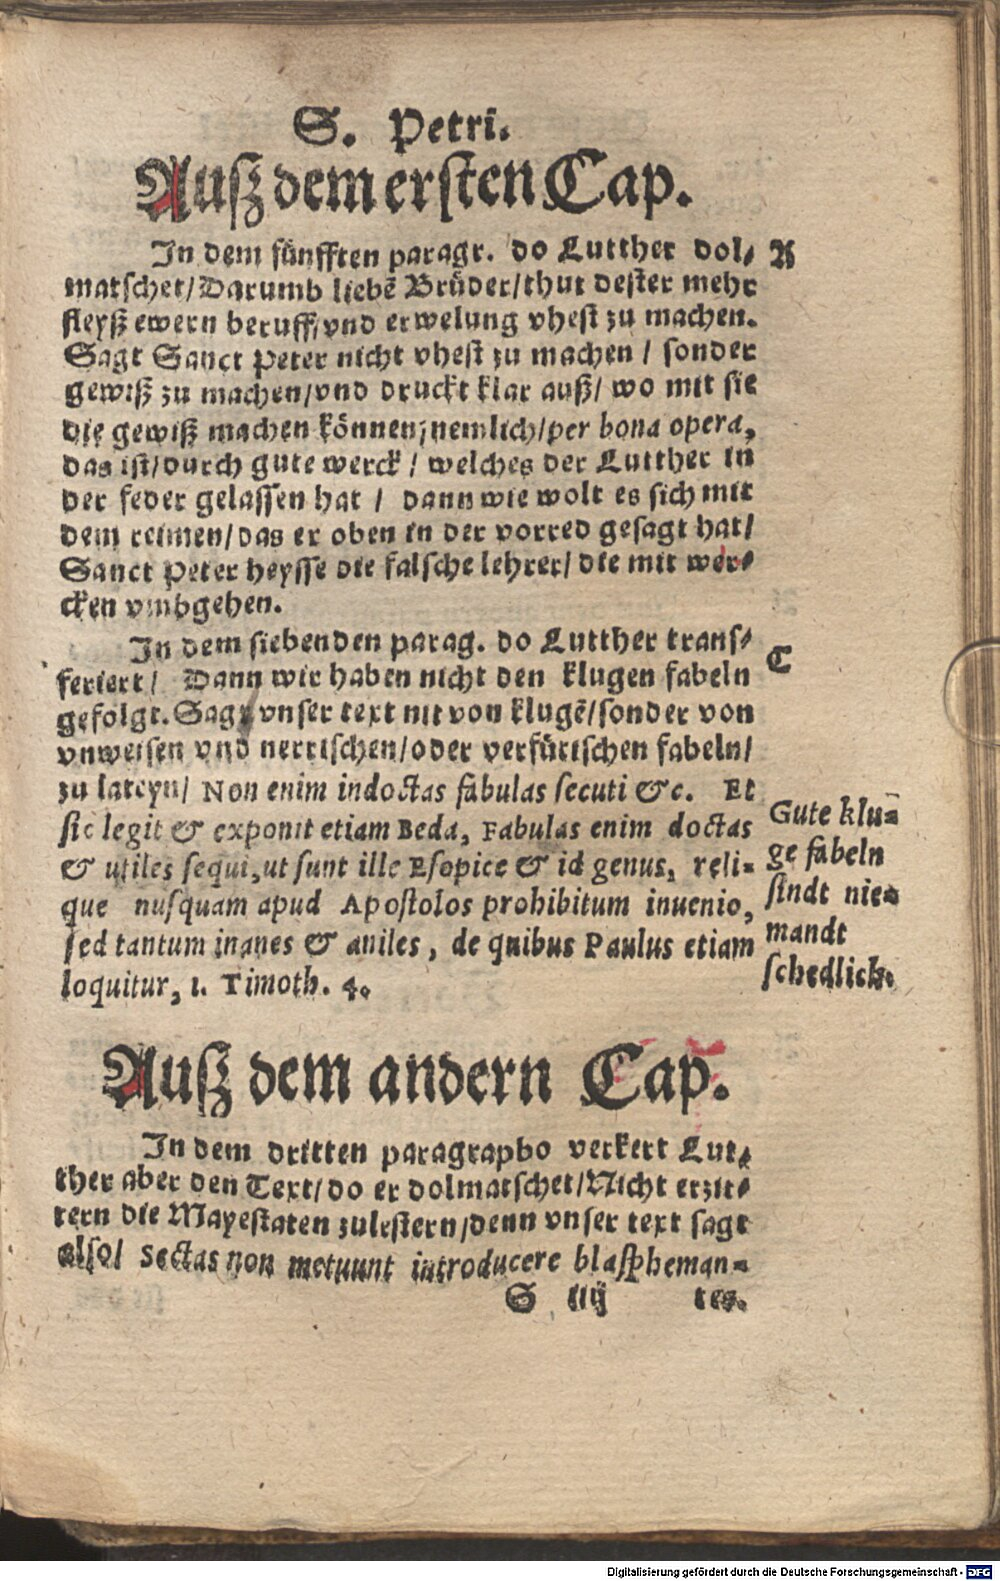 S. Petri.
Ausz dem ersten Cap.
In dem fünfften paragr. do Lutther dol⸗
A
matschet/Darumb liebẽ Brüder/thut dester mehr
fleysz ewern beruff/vnd erwelung vhest zu machen.
Sagt Sanct Peter nicht vhest zu machen / sonder
gewisz zu machen/vnd druckt klar ausz/ wo mit sie
die gewisz machen können; nemlich/per bona opera,
das ist/durch gute werck / welches der Lutther in
der feder gelassen hat / dann wie wolt es sich mit
dem reimen/das er oben in der vorred gesagt hat/
Sanct Peter heysse die falsche lehrer/ die mit wer⸗
cken vmbgehen.
In dem siebenden parag. do Lutther trans⸗
C
feriert/ Dann wir haben nicht den klugen fabeln
gefolgt. Sagt vnser text nit von klugẽ/sonder von
vnweisen vnd nerrischen/oder verfürischen fabeln/
zu lateyn/ Non enim indoctas fabulas secuti &c. Et
sic legit & exponit etiam Beda, Fabulas enim doctas
& utiles sequi, ut sunt ille Esopice & id genus, reli-
que nusquam apud Apostolos prohibitum inuenio,
sed tantum inanes & aniles, de quibus Paulus etiam
loquitur, 1. Timoth. 4.
Gute klu-
ge fabeln
sindt nie-
mandt
schedlich.
Ausz dem andern Cap.
In dem dritten paragrapho verkert Lut⸗
ther aber den Text/do er dolmatschet/Nicht erzit⸗
tern die Mayestaten zulestern/denn vnser text sagt
also/ Sectas non metuunt introducere blaspheman-
S iiij tes.
Digitalisierung gefördert durch die Deutsche Forschungsgemeinschaft - DFG